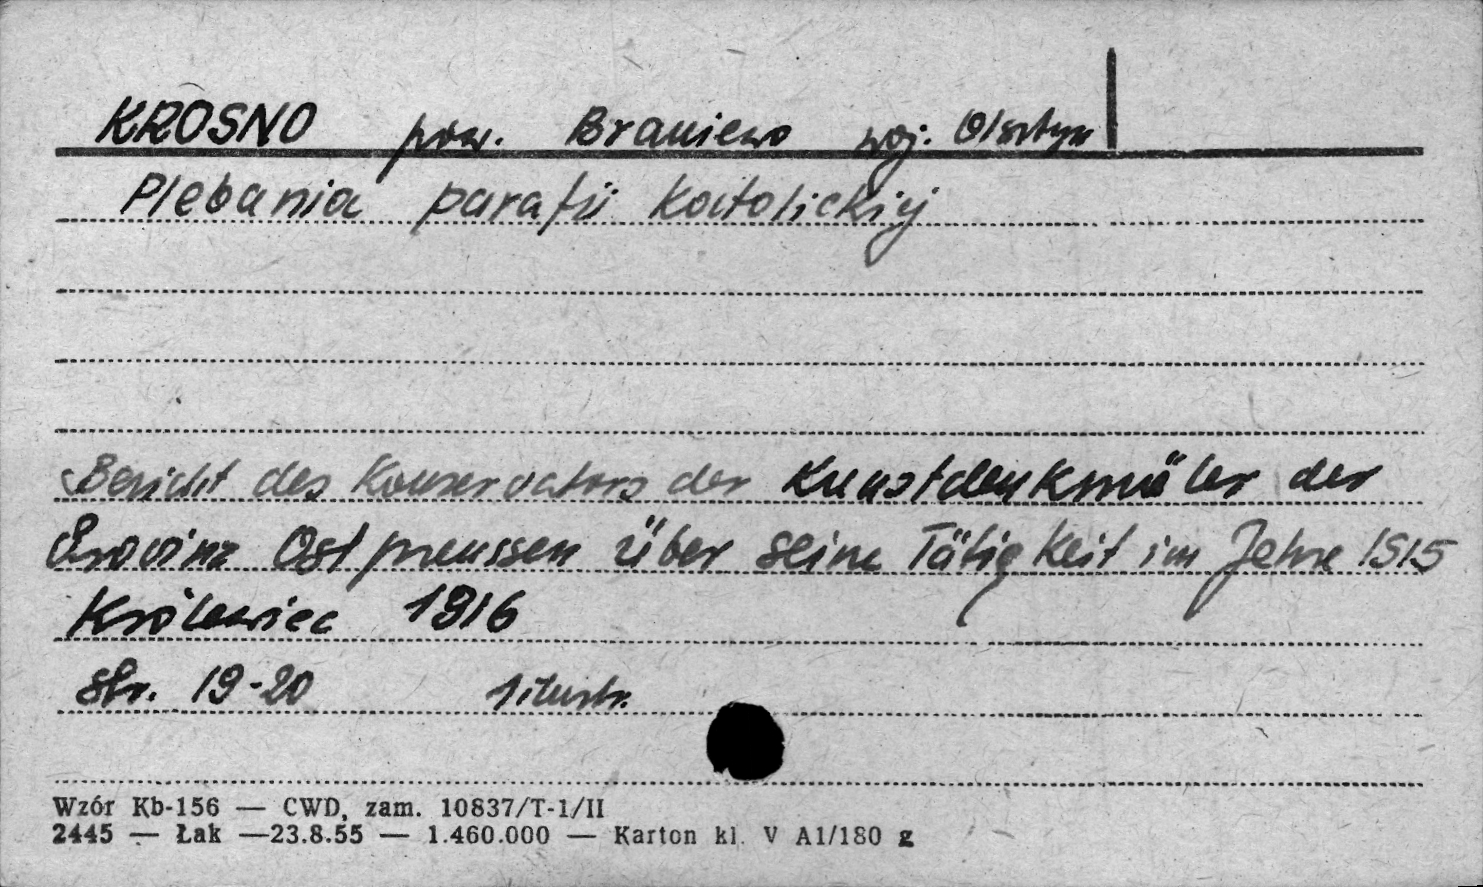 KROSNO pow. Braniewo woj. Olsztyn
Plebania parafii katolickiej
Bericht des Konservators der Kunstdenkmäler der
Provinz Ostpreussen über seine Tätigkeit im Jahre 1915
Królewiec 1916
str. 19-20 1 ilustr.
Wzór Kb-156 — CWD, zam. 10837/T-1/II
2445 — Łak —23.8.55 — 1.460.000 — Karton kl. V A1/180 g